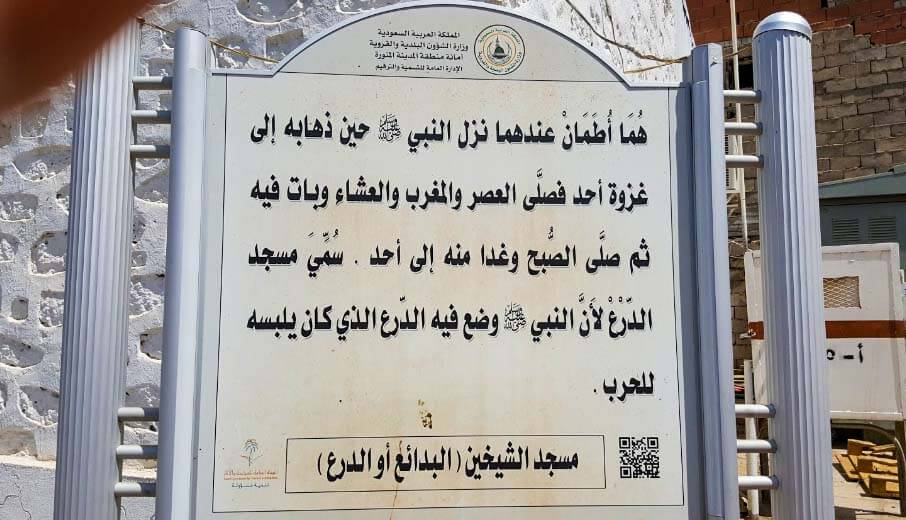 المملكة العربية السعودية
وزارة الشؤون البلدية والقروية
أمانة منطقة المدينة المنورة
الإدارة العامة للتسمية والترقيم
هُمَا أُطَمَانْ عندهما نزل النبي ﷺ حين ذهابه إلى
غزوة أحد فصلَّى العصر والمغرب والعشاء وبات فيه
ثم صلَّى الصُّبح وغدا منه إلى أحد . سُمِّيَ مسجد
الدّرْعْ لأَنَّ النبي ﷺ وضع فيه الدّرع الذي كان يلبسه
للحرب .
مسجد الشيخين ( البدائع أو الدرع )
أ -